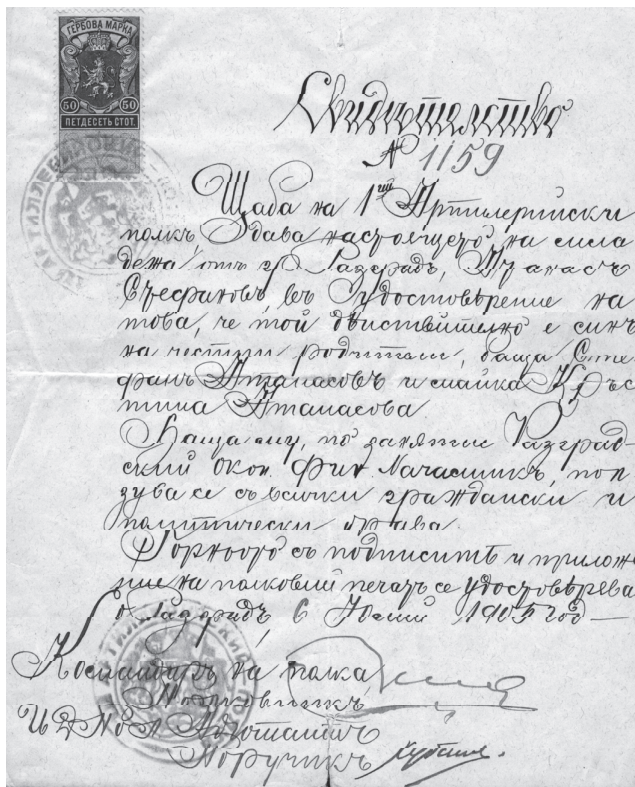 ГЕРБОВА МАРКА
50 50
ПЕТДЕСЕТЬ СТОТ.
Свидѣтелство
№ 1159
Щаба на 1ий Артилерийски
полкъ, дава настоящето на
отъ гр. Разградъ, Атанасъ
Стефановъ, въ удостовѣрение на
това, че той дѣйствително е синъ
на честни родители, баща Сте
фанъ Атанасовъ и майка Кръс
тина Атанасова.
Баща му, по занятие Разград-
ский Окол. Фин. Началникъ, пол
зува се съ всички граждански и
политически права.
Горньото съ подписитѣ и приложе
ние на полковий печатъ се удостовѣрява
Разградъ, 6 Юний 1905 год
Командиръ на полка,
Полковникъ
Адютантъ
Поручикъ